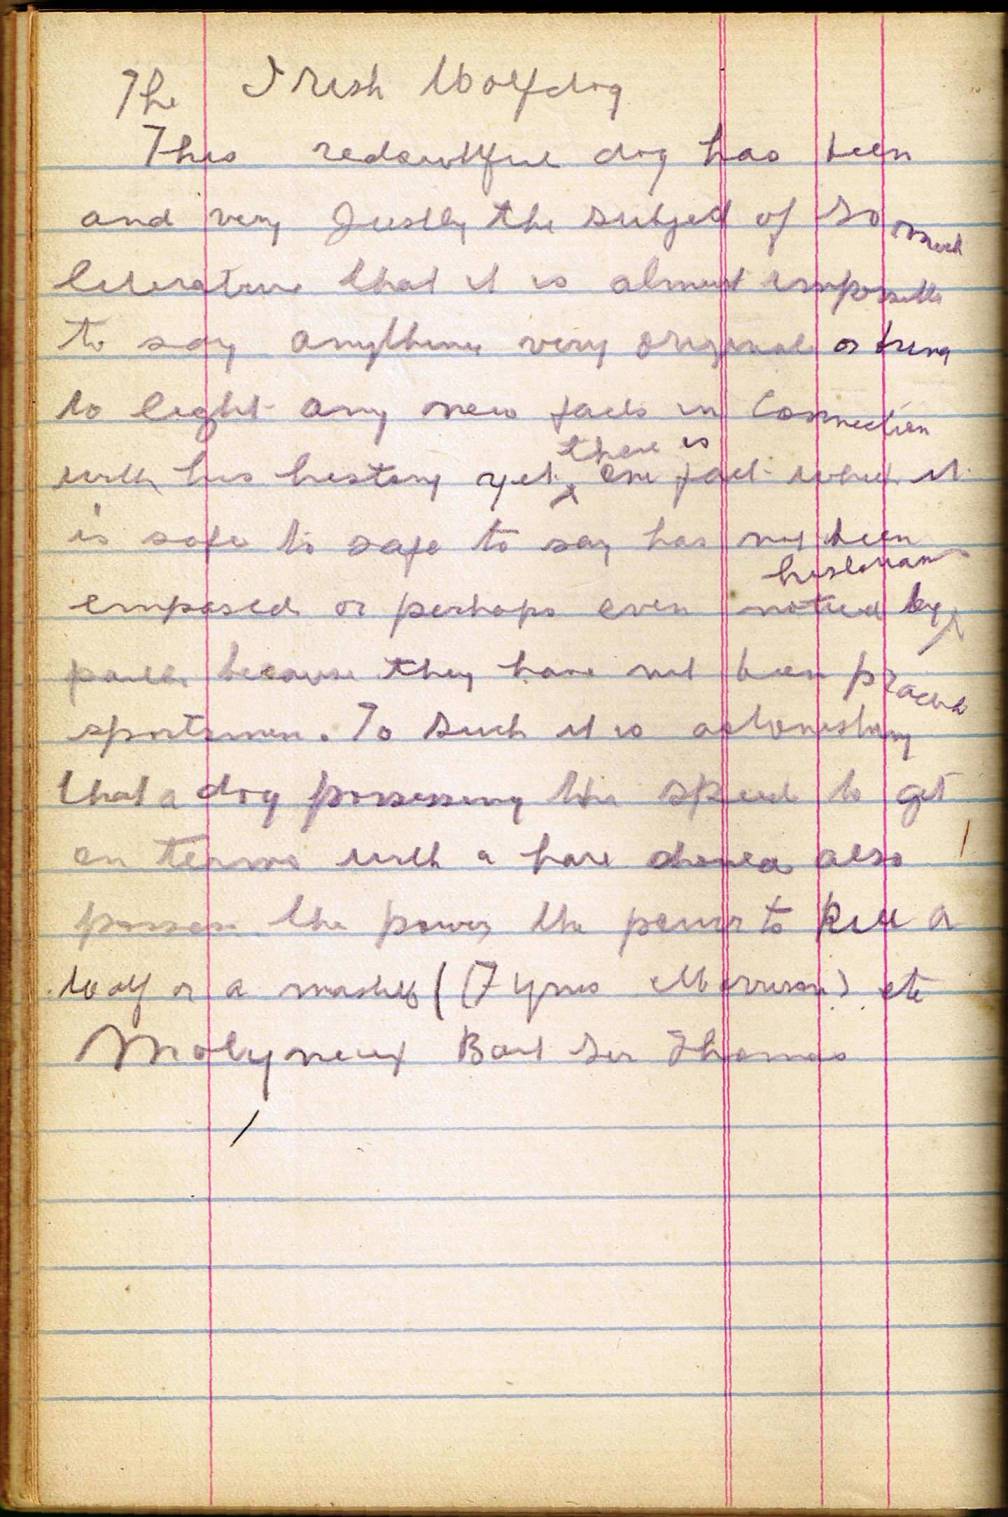 The Irish Wolfdog
This redoubtful dog has been
and very Justly the subject of so much
literature that it is almost impossible
to say anything very original or bring
to light any new facts in Connection
with his history yet there is one fact which it
is safe to safe to say has not been
historians
or perhaps even noticed by
because they have not been
sportsmen. To such it is astonishing
that a dog possessing the speed to get
on terms with a hare also
possess the power the power to kill a
Wolf or a mastiff (Fynes Morrison) etc
Molyneux Bart Sir Thomas